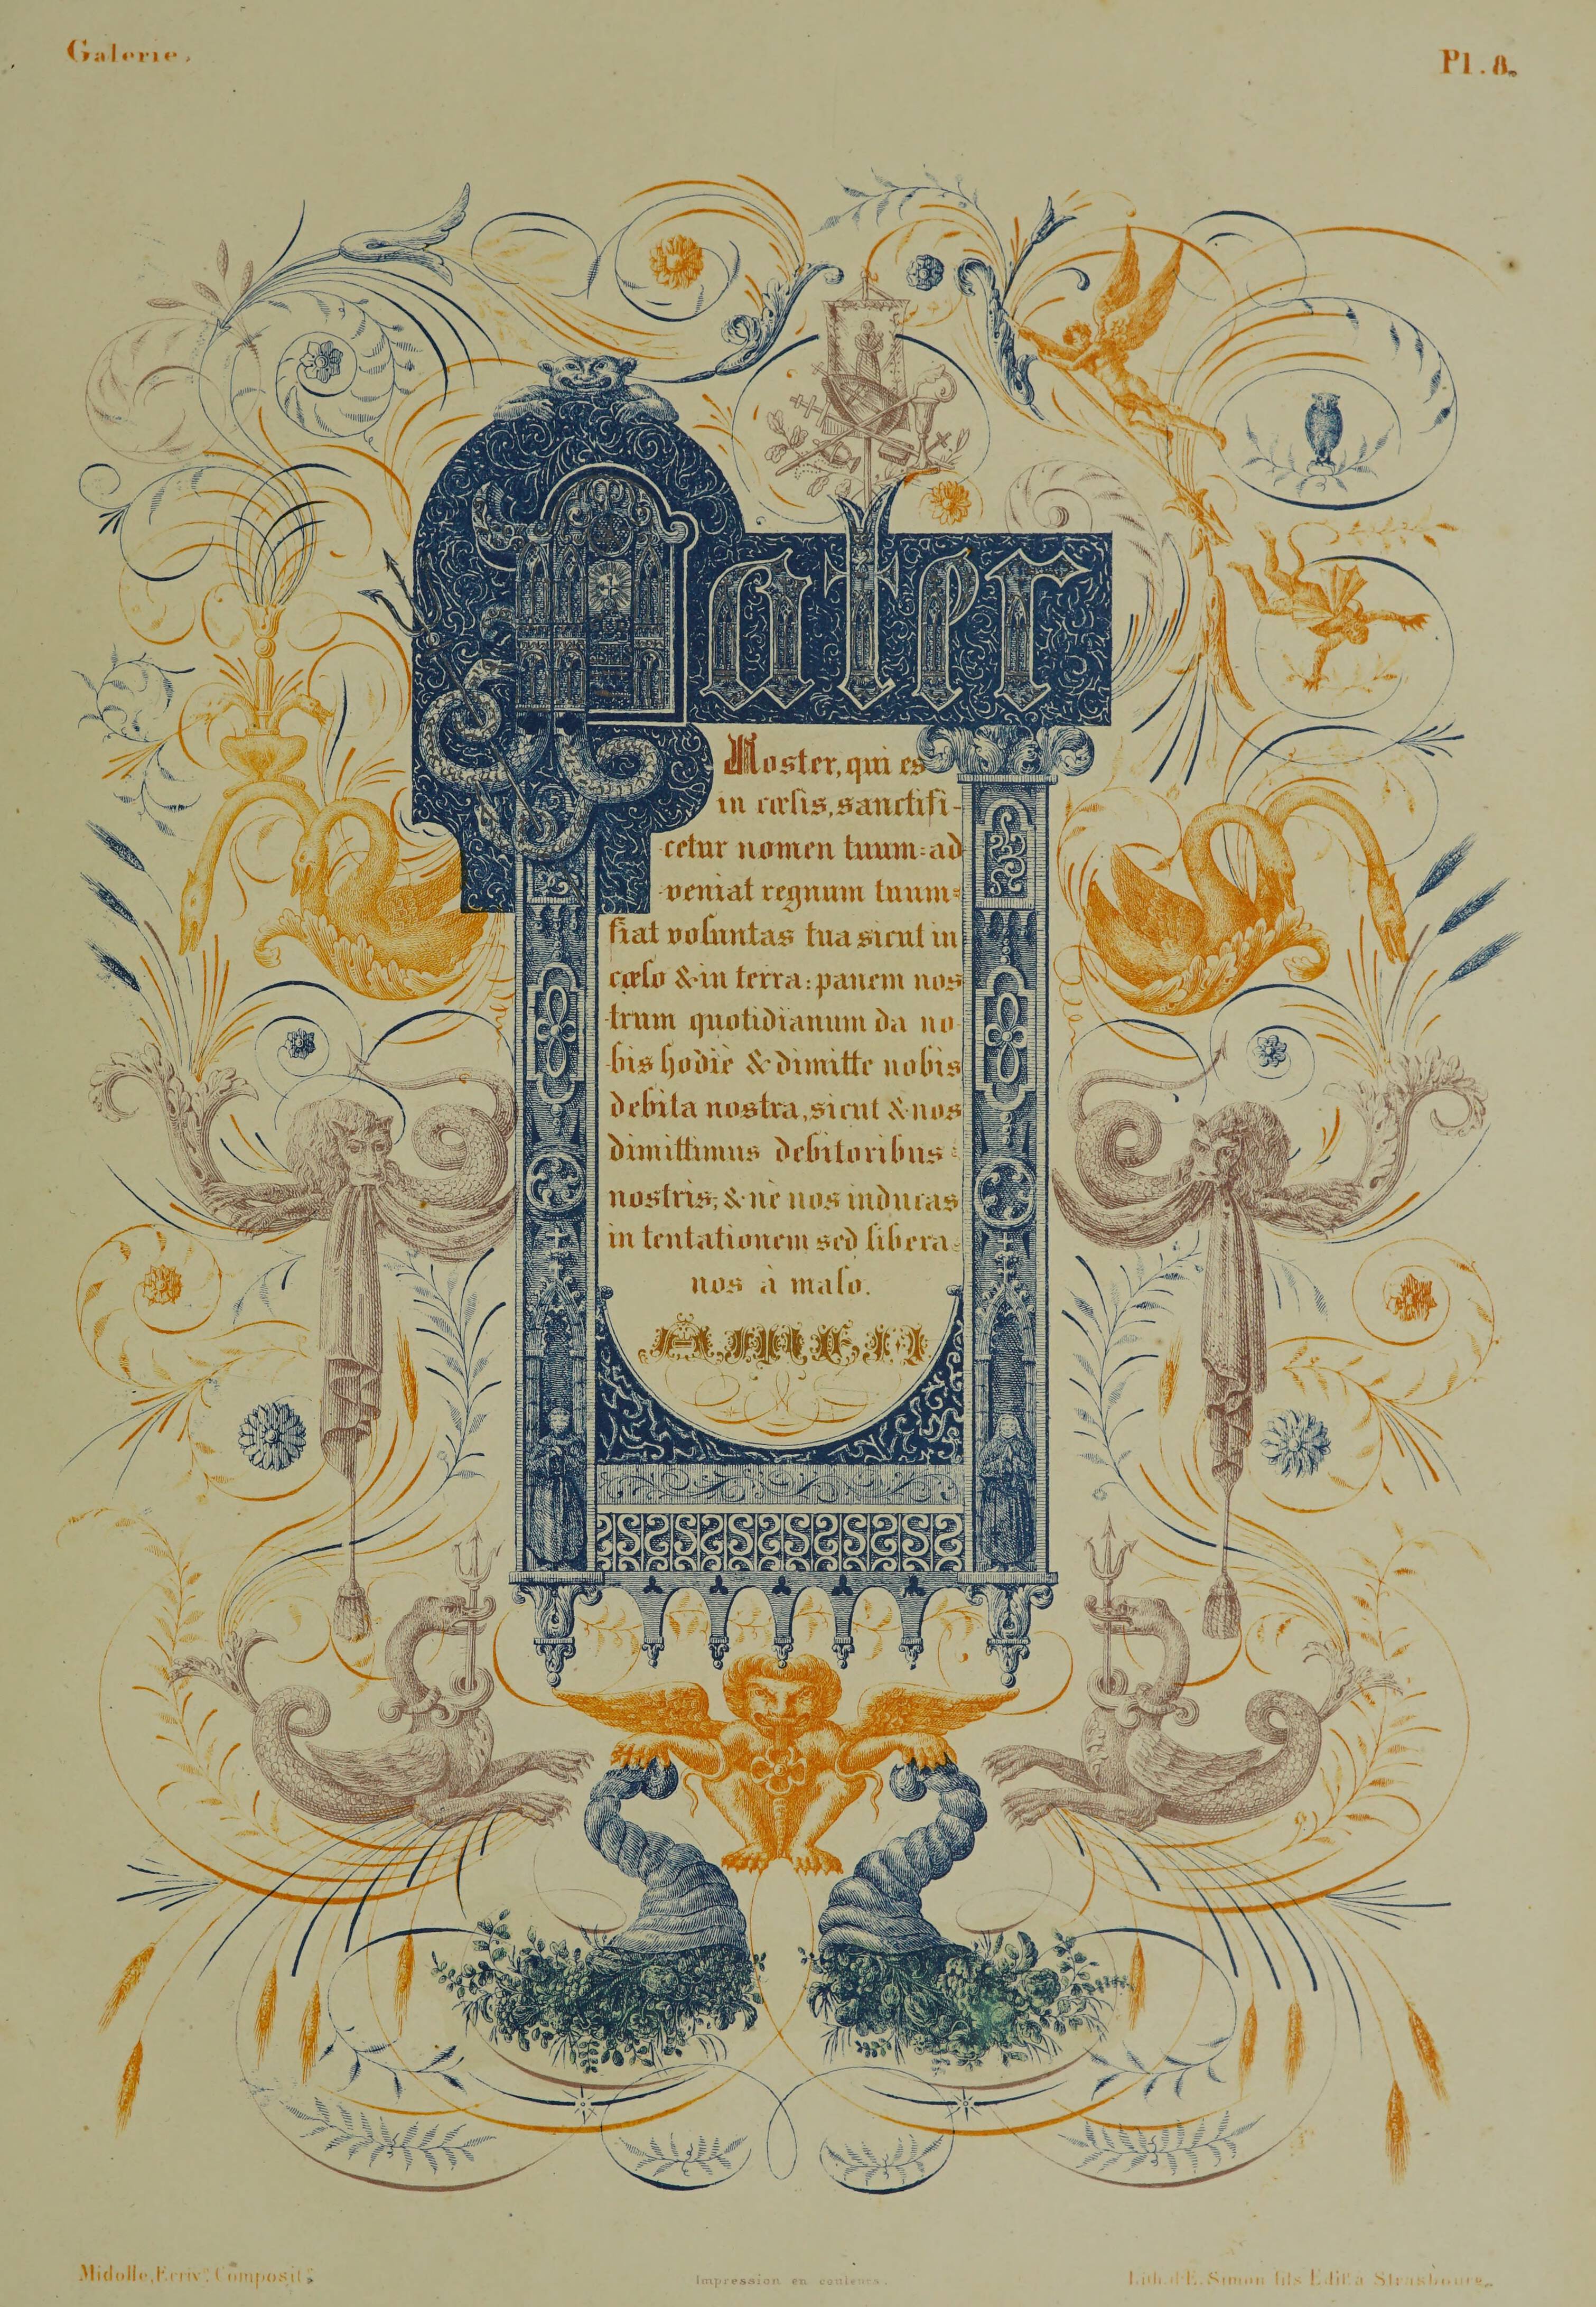 Galerie.
Pl. 8.
Pater
Noster, qui es
in cœlis, sanctifi-
cetur nomen tuum: ad
veniat regnum tuum:
fiat voluntas tua sicut in
cœlo & in terra: panem nos
trum quotidianum da no
bis hodiè & dimitte nobis
debita nostra, sicut & nos
dimittimus debitoribus
nostris; & nè nos inducas
in tentationem sed libera
nos à malo.
AMEN
Midolle, Ecrivn. Composit.
Impression en couleurs.
Lith. d'E. Simon fils Edit. à Strasbourg.